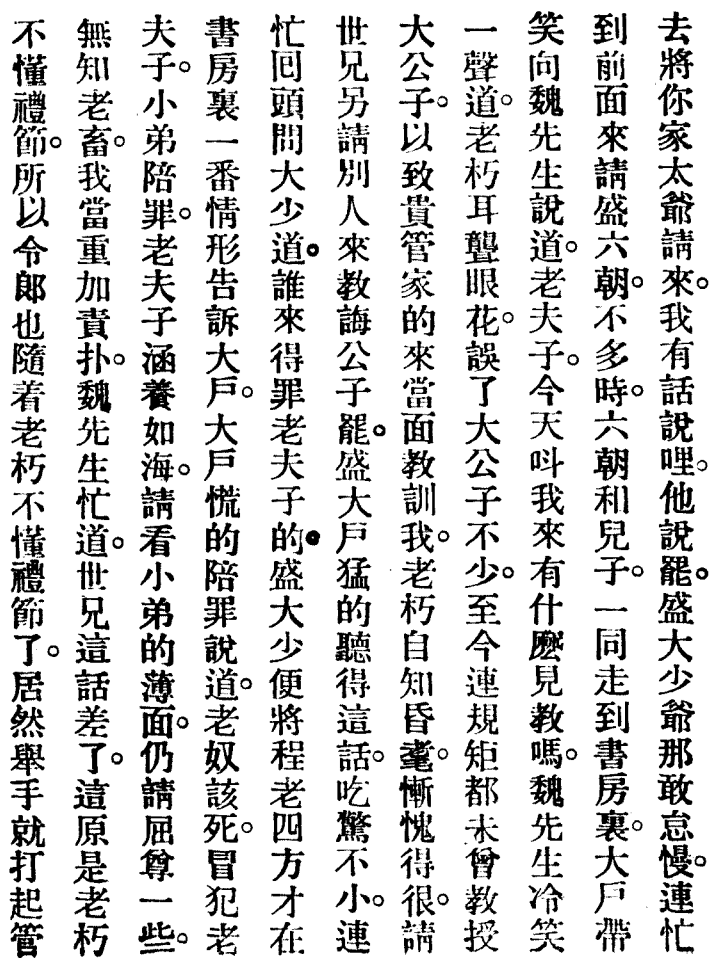 去將你家太爺請來。我有話說哩。他說罷。盛大少爺那敢怠慢。連忙
到前面來請盛六朝。不多時。六朝和兒子。一同走到書房裏。大戶帶
笑向魏先生說道。老夫子。今天呌我來有什麽見教嗎。魏先生冷笑
一聲道。老朽耳聾眼花。誤了大公子不少。至今連規矩都未曾教授
大公子。以致貴管家的來當面教訓我。老朽自知昏耄。慚愧得很。請
世兄另請別人來教誨公子罷。盛大戶猛的聽得這話。吃驚不小。連
忙囘頭問大少道。誰來得罪老夫子的。盛大少便將程老四方才在
書房裏一番情形告訴大戶。大戶慌的陪罪說道。老奴該死。冒犯老
夫子。小弟陪罪。老夫子涵養如海。請看小弟的薄面。仍請屈尊一些。
無知老畜。我當重加責扑。魏先生忙道。世兄這話差了。這原是老朽
不懂禮節。所以令郎也隨着老朽不懂禮節了。居然舉手就打起管